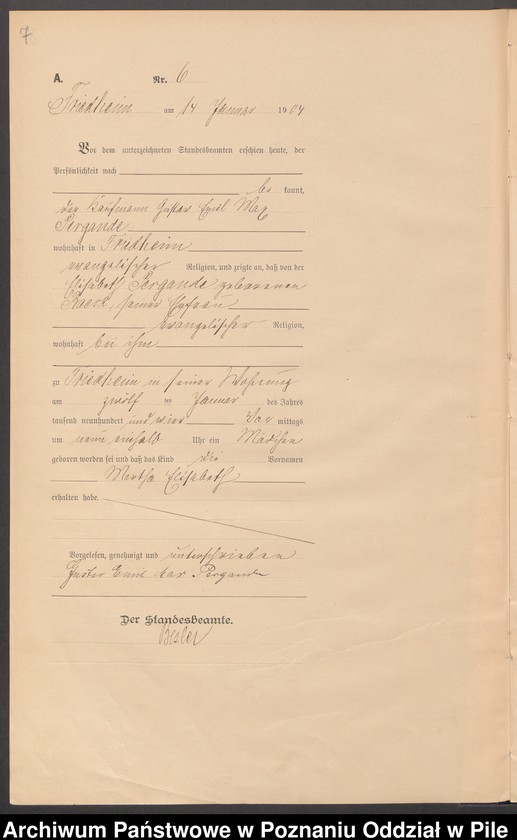 7
A. Nr. 6
Friedheim am 14 Januar 1904
Vor dem unterzeichneten Standesbeamten erschien heute, der
Persönlichkeit nach
be kannt,
der Kaufmann Gustav Emil Max
Pergande
wohnhaft in Friedheim
evangelischer Religion, und zeigte an, daß von der
Elisabeth Pergande geborenen
seiner Ehefrau
evangelischer Religion,
wohnhaft bei ihm
zu Friedheim in seiner Wohnung
am zwölf ten Januar des Jahres
tausend neunhundert und vier Vor mittags
um neun einhalb Uhr ein Mädchen
geboren worden sei und daß das Kind die Vornamen
Martha Elisabeth
erhalten habe.
Vorgelesen, genehmigt und unterschrieben
Gustav Emil Max Pergande
Der Standesbeamte.
Besler
Archiwum Państwowe w Poznaniu Oddział w Pile